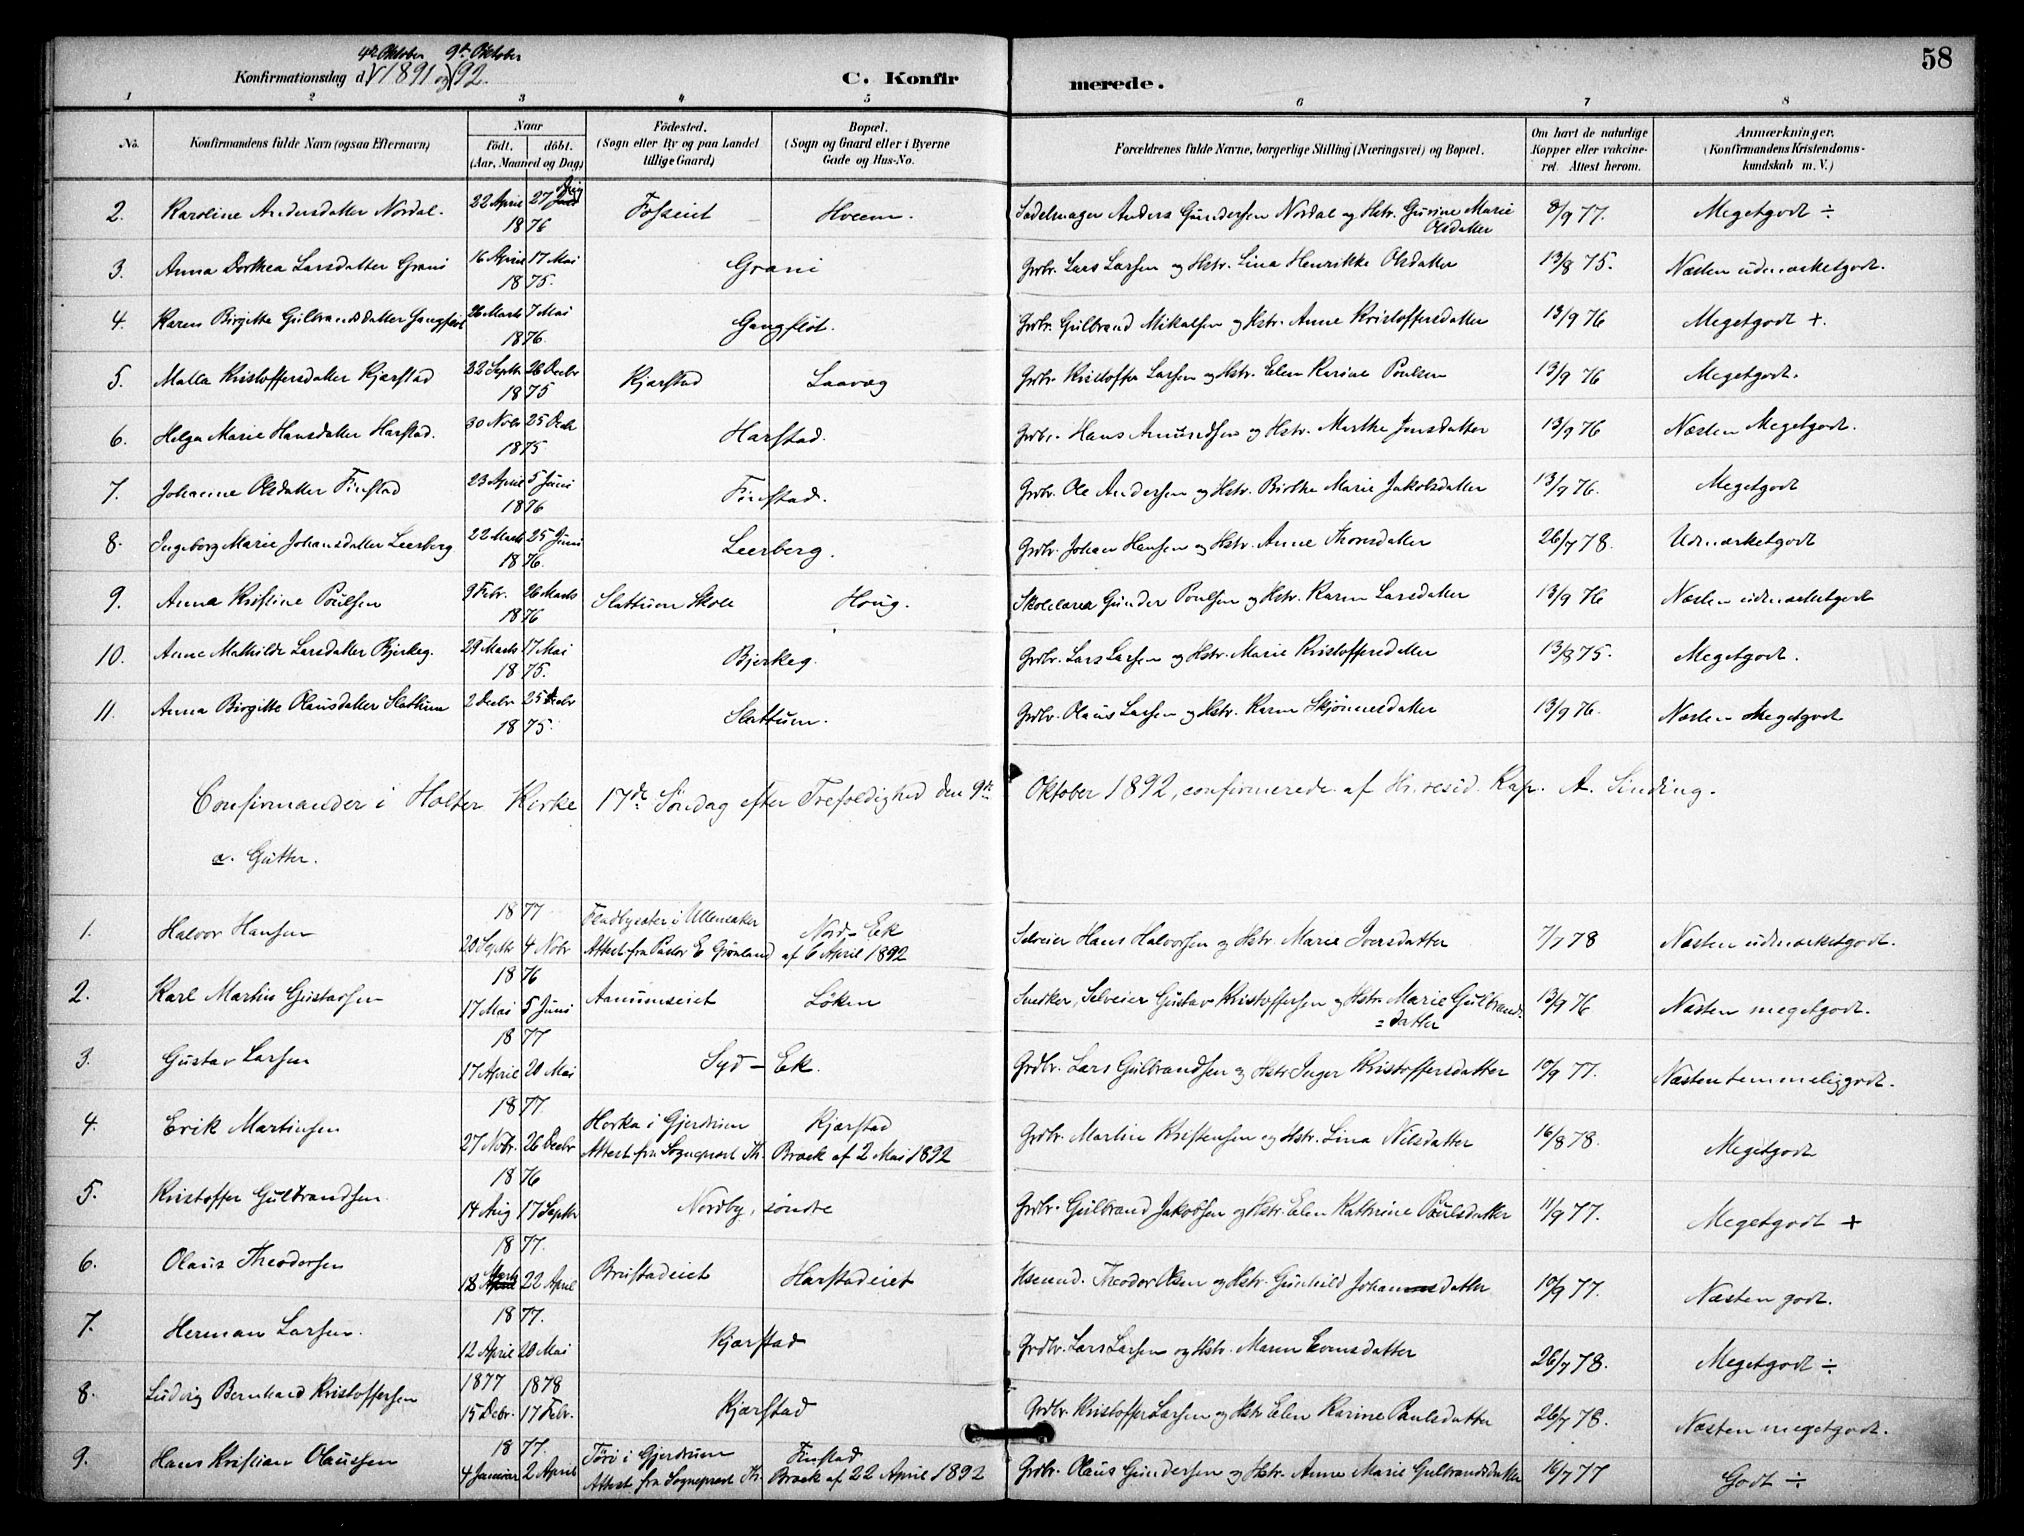 58
4de Oktober 9de Oktober
Konfirmationsdag d. 1891 og 92.
C. Konfirmerede.
1 2 3 4 5 6 7 8
No. Konfirmandens fulde Navn (ogsaa Efternavn) Naar født. døbt. (Aar, Maaned og Dag) Födested. (Sogn eller By og paa Landet tillige Gaard) Bopæl. (Sogn og Gaard eller i Byerne Gade og Hus-No. Forældrenes fulde Navne, borgerlige Stilling (Næringsvei) og Bopæl. Om havt de naturlige Kopper eller vakcineret. Attest herom. Anmærkninger. (Konfirmandens Kristendomskundskab m. V.)
2. Karoline Andersdatter Nordal. 22 April 27 1876 Fosseiet Hvoem. Sadelmager Anders Gundersen Nordal og Hstr. Gurine Marie Olsdatter 8/9 77. Megetgodt ÷
3. Anna Dorthea Larsdatter Grani 16 April 17 Mai 1875. Grani Grdbr. Lars Larsen og Hstr. Lina Henrikke Olsdatter 13/8 75. Næsten udmærketgodt.
4. Karen Birgitte Gulbrandsdatter Gangfløt 26 Marts 7 Mai 1876. Gangfløt. Grdbr. Gulbrand Mikalsen og Hstr. Anne Kristoffersdatter 13/9 76 Megetgodt +.
5. Malla Kristoffersdatter Kjærstad 22 Septr. 26 Decbr 1875 Kjærstad Laavæg Grdbr. Kristoffer Larsen og Hstr. Elen Karine Poulsen 13/9 76 Megetgodt.
6. Helga Marie Hansdatter Harstad. 30 Novbr 25 Decbr 1875 Harstad. Grdbr. Hans Amundsen og Hstr. Marthe Jonsdatter 13/9 76 Næsten Megetgodt.
7. Johanne Olsdatter Finstad 23 April 5 Juni 1876 Finstad. Grdbr. Ole Andersen og Hstr. Birthe Marie Jakobsdatter 13/9 76. Megetgodt
8. Ingeborg Marie Johansdatter Leerberg 22 Marts 25 Juni 1876. Leerberg. Grdbr. Johan Hansen og Hstr. Anne Thorsdatter 26/7 78. Udmærketgodt
9. Anna Kristine Poulsen 9 Febr. 26 Marts 1876 Slattum Skole Houg. Skolelærer Gunder Poulsen og Hstr. Karen Larsdatter 13/9 76 Næsten udmærketgodt
10. Anne Mathilde Larsdatter Bjerkeg. 29 Marts 17 Mai 1875. Bjerkeg. Grdbr. Lars Larsen og Hstr. Marie Kristoffersdatter 13/8 75. Megetgodt.
11. Anna Birgitte Olausdatter Slattum 2 Decbr 25 Decbr 1875. Slattum. Grdbr. Olaus Larsen og Hstr. Karen Skjønnesdatter 13/9 76. Næsten Megetgodt
Confirmander i Holter Kirke 17de Søndag efter Trefoldighed den 9de Oktober 1892, confirmerede af Hr. resid. Kap. A. Sinding.
a. Gutter.
1. Halvor Hansen 1877 20 Septr 4 Nobr Fladbysæter i Ullensaker Attest fra Pastor E Grønland af 6 April 1892 Nord-Ek Selveier Hans Halvorsen og Hstr. Marie Iversdatter 7/7 78 Næsten udmærketgodt.
2. Karl Martin Gustavsen 1876 17 Mai 5 Juni Aamumseiet Løken Snedker, Selveier Gustav Kristoffersen og Hstr. Marie Gulbrands=datter 13/9 76 Næsten megetgodt.
3. Gustav Larsen 1877 17 April 20 Mai Syd-Ek. Grdbr. Lars Gulbrandsen og Hstr Inger Kristoffersdatter 10/9 77. Næsten temmeliggodt.
4. Erik Martinsen 1877. 27 Nobr. 26 Decbr Horka i Gjerdrum Attest fra Sogneprest Th. Broch af 2 Mai 1892 Kjærstad Grdbr. Martin Kristensen og Hstr. Lina Nilsdatter 16/8 78. Megetgodt
5. Kristoffer Gulbrandsen. 1876 14 Aug 17 Septbr Nordby, søndre Grdbr. Gulbrand Jakobsen og Hstr. Elen Kathrine Poulsdatter 11/9 77. Megetgodt +
6. Olaus Theodorsen 1877. 18 Marts 22 April Brustadeiet Harstadeiet Husmd. Theodor Olsen og Hstr. Gunhild Johannesdatter 10/9 77. Næsten godt.
7. Herman Larsen. 1877. 12 April 20 Mai Kjærstad Grdbr. Lars Larsen og Hstr. Maren Evensdatter 26/7 78. Megetgodt ÷
8. Ludvig Bernhard Kristoffersen 1877 1878 15 Debr. 17 Febr. Kjærstad Grdbr. Kristoffer Larsen og Hstr Elen Karine Paulsdatter 26/7 78. Næsten megetgodt.
9. Hans Kristian Olaussen 1877. 4 Januar 2 April Tørö i Gjerdrum Attest fra Sogneprest Th. Broch af 22 April 1892 Finstad Grdbr. Olaus Gundersen og Hstr. Anne Marie Gulbrandsdatter 16/7 77 Godt ÷